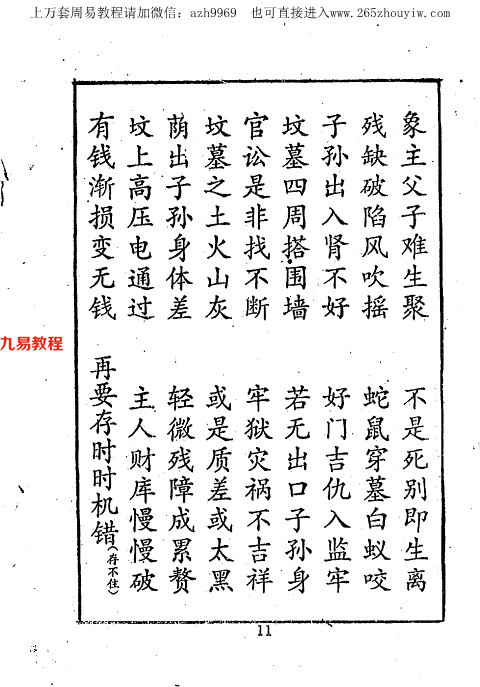 上万套周易教程请加微信：azh9969 也可直接进入www.265zhouyiw.com
象主父子难生聚 不是死别即生离
残缺破陷风吹摇 蛇鼠穿墓白蚁咬
子孙出入肾不好 好门吉仇入监牢
坟墓四周搭围墙 若无出口子孙身
官讼是非找不断 牢狱灾祸不吉祥
坟墓之土火山灰 或是质差或太黑
荫出子孙身体差 轻微残障成累赘
坟上高压电通过 主人财库慢慢破
有钱渐损变无钱 再要存时时机错（存不住）
九易教程
11